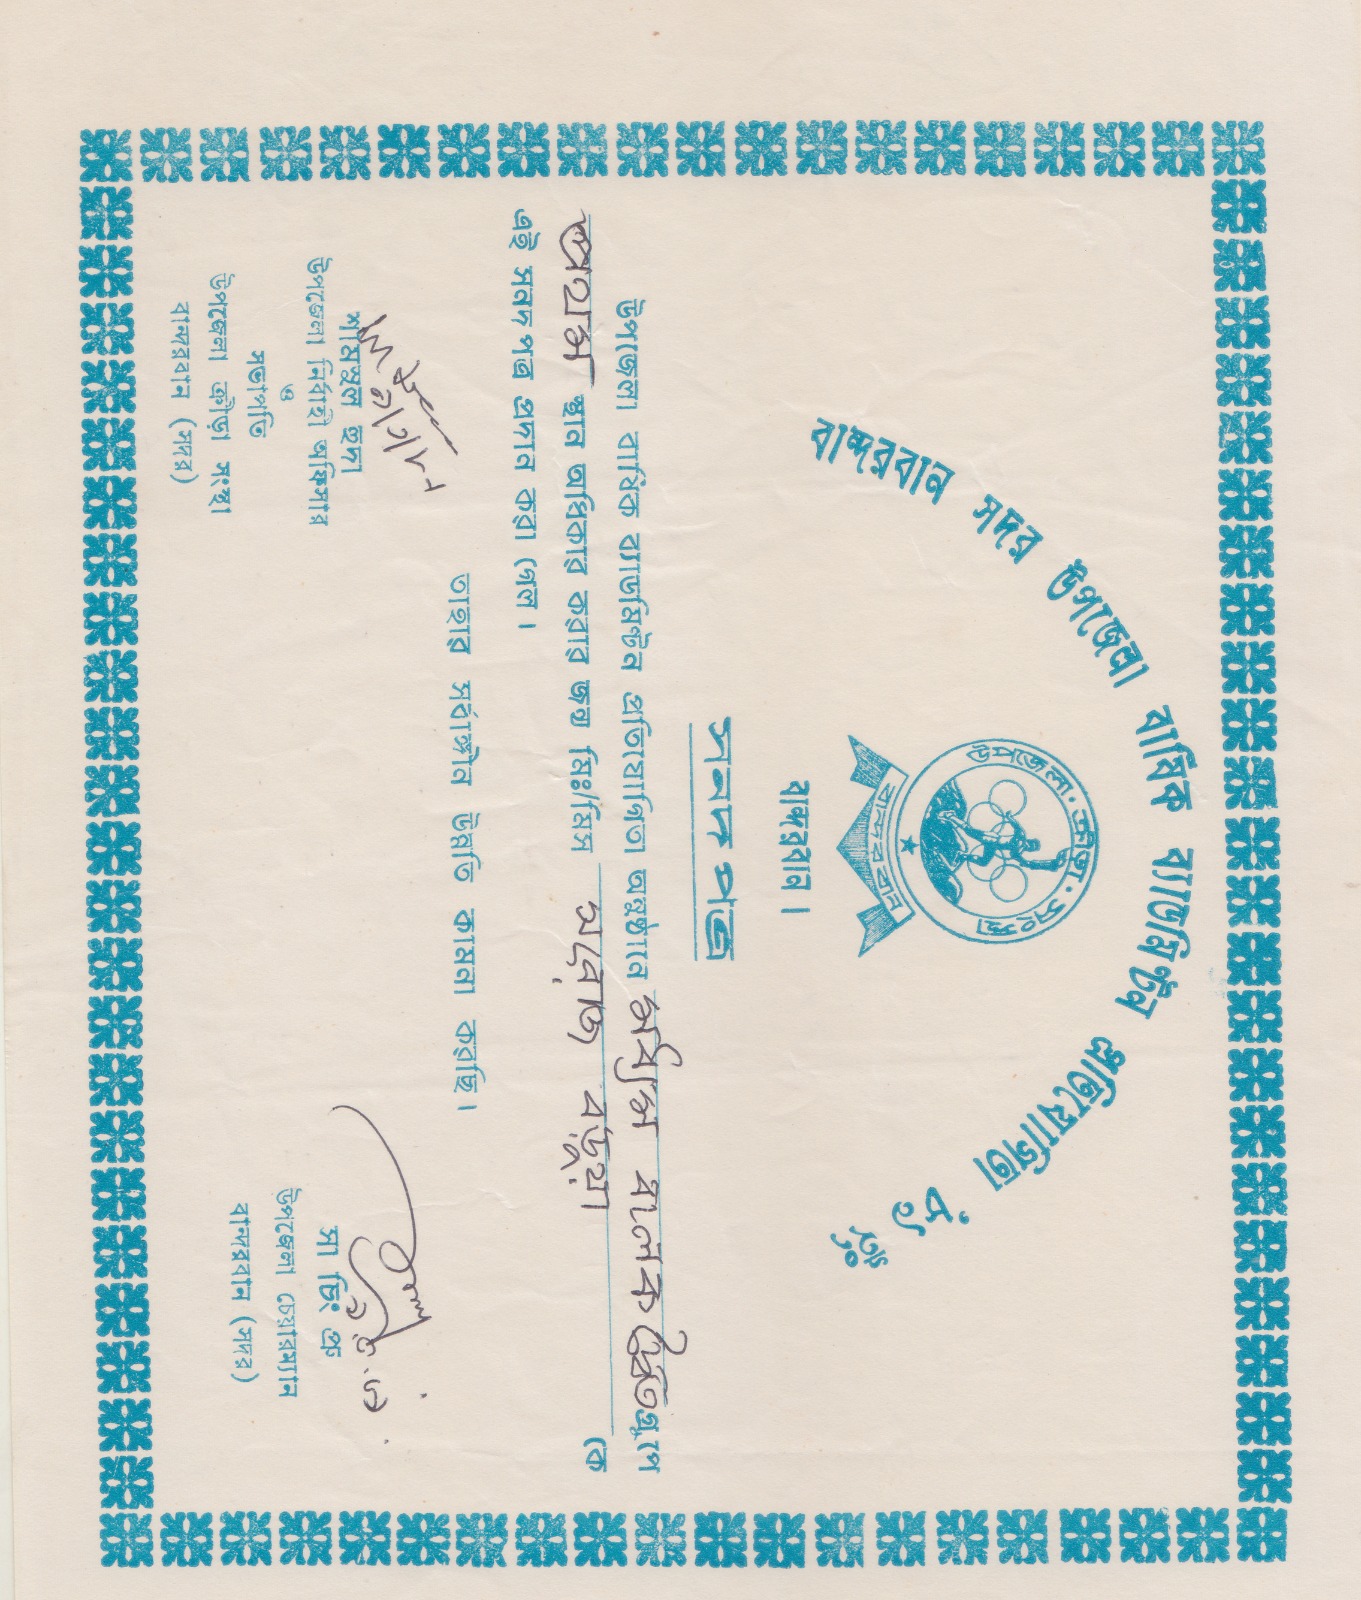 বান্দরবান সদর উপজেলা বার্ষিক ব্যাডমিণ্টন প্রতিযোগিতা '৮৯ ইং
উপজেলা · ক্রীড়া · সংস্থা
বান্দরবান
বান্দরবান ।
সনদ পত্র
উপজেলা বার্ষিক ব্যাডমিণ্টন প্রতিযোগিতা অনুষ্ঠানে মধ্যম বালক দ্বৈত গ্রুপে
প্রথম স্থান অধিকার করার জন্য মিঃ/মিস সরোজ বড়ুয়া কে
এই সনদ পত্র প্রদান করা গেল ।
তাহার সর্বাঙ্গীন উন্নতি কামনা করছি ।
শামসুল হুদা
উপজেলা নির্বাহী অফিসার
ও
সভাপতি
উপজেলা ক্রীড়া সংস্থা
বান্দরবান (সদর)
সা চিং প্রু
উপজেলা চেয়ারম্যান
বান্দরবান (সদর)